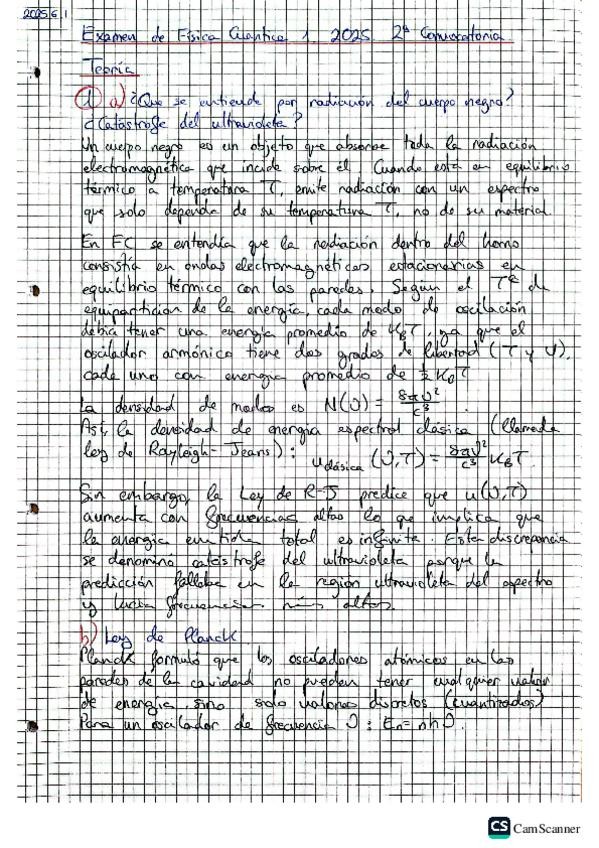 2025 6 1
Examen de Física Cuántica 1. 2025. 2ª Convocatoria
Teoría
1) a) ¿Que se entiende por radiación del cuerpo negro?
¿Catástrofe del ultravioleta?
Un cuerpo negro es un objeto que absorbe toda la radiación
electromagnética que incide sobre él. Cuando está en equilibrio
térmico a temperatura T, emite radiación con un espectro
que solo depende de su temperatura T, no de su material.
En FC se entendía que la radiación dentro del horno
consistía en ondas electromagnéticas estacionarias en
equilibrio térmico con las paredes. Según el Tª de
equipartición de la energía, cada modo de oscilación
debía tener una energía promedio de K_BT, ya que el
oscilador armónico tiene dos grados de libertad (T y U),
cada uno con energía promedio de ½ K_BT
La densidad de modos es N(ν) = 8πν²/c³.
Así, la densidad de energía espectral clásica (llamada
ley de Rayleigh-Jeans): u_clásica (ν,T) = 8πν²/c³ K_BT.
Sin embargo, la Ley de R-J predice que u(ν,T)
aumenta con frecuencias altas lo que implica que
la energía emitida total es infinita. Esta discrepancia
se denominó catástrofe del ultravioleta porque la
predicción fallaba en la región ultravioleta del espectro
y hacia frecuencias más altas.
b) Ley de Planck
Planck formuló que los osciladores atómicos en las
paredes de la cavidad no pueden tener cualquier valor
de energía, sino solo valores discretos (cuantizados)
Para un oscilador de frecuencia ν: En = nhν.
CS CamScanner